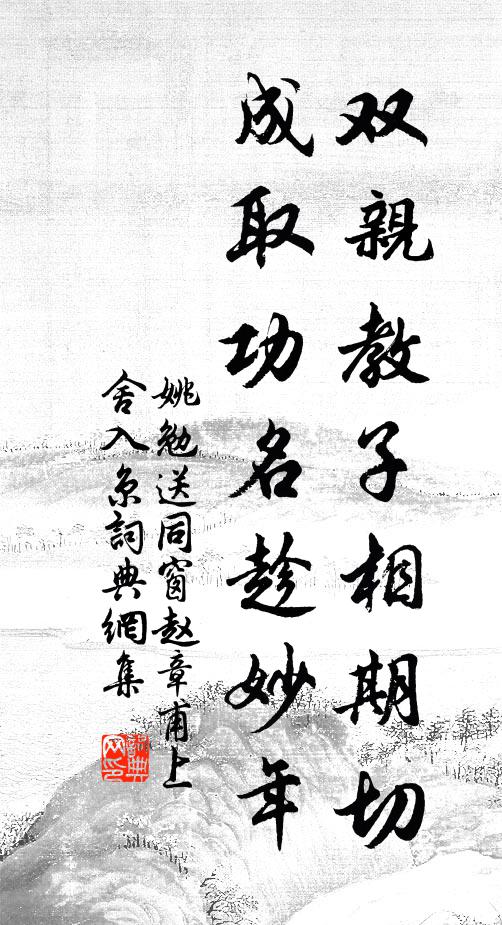 双親教子相期切
成取功名趁妙年
姚勉送同窗赵章甫上
舍入京詞典網集
詞典
网印